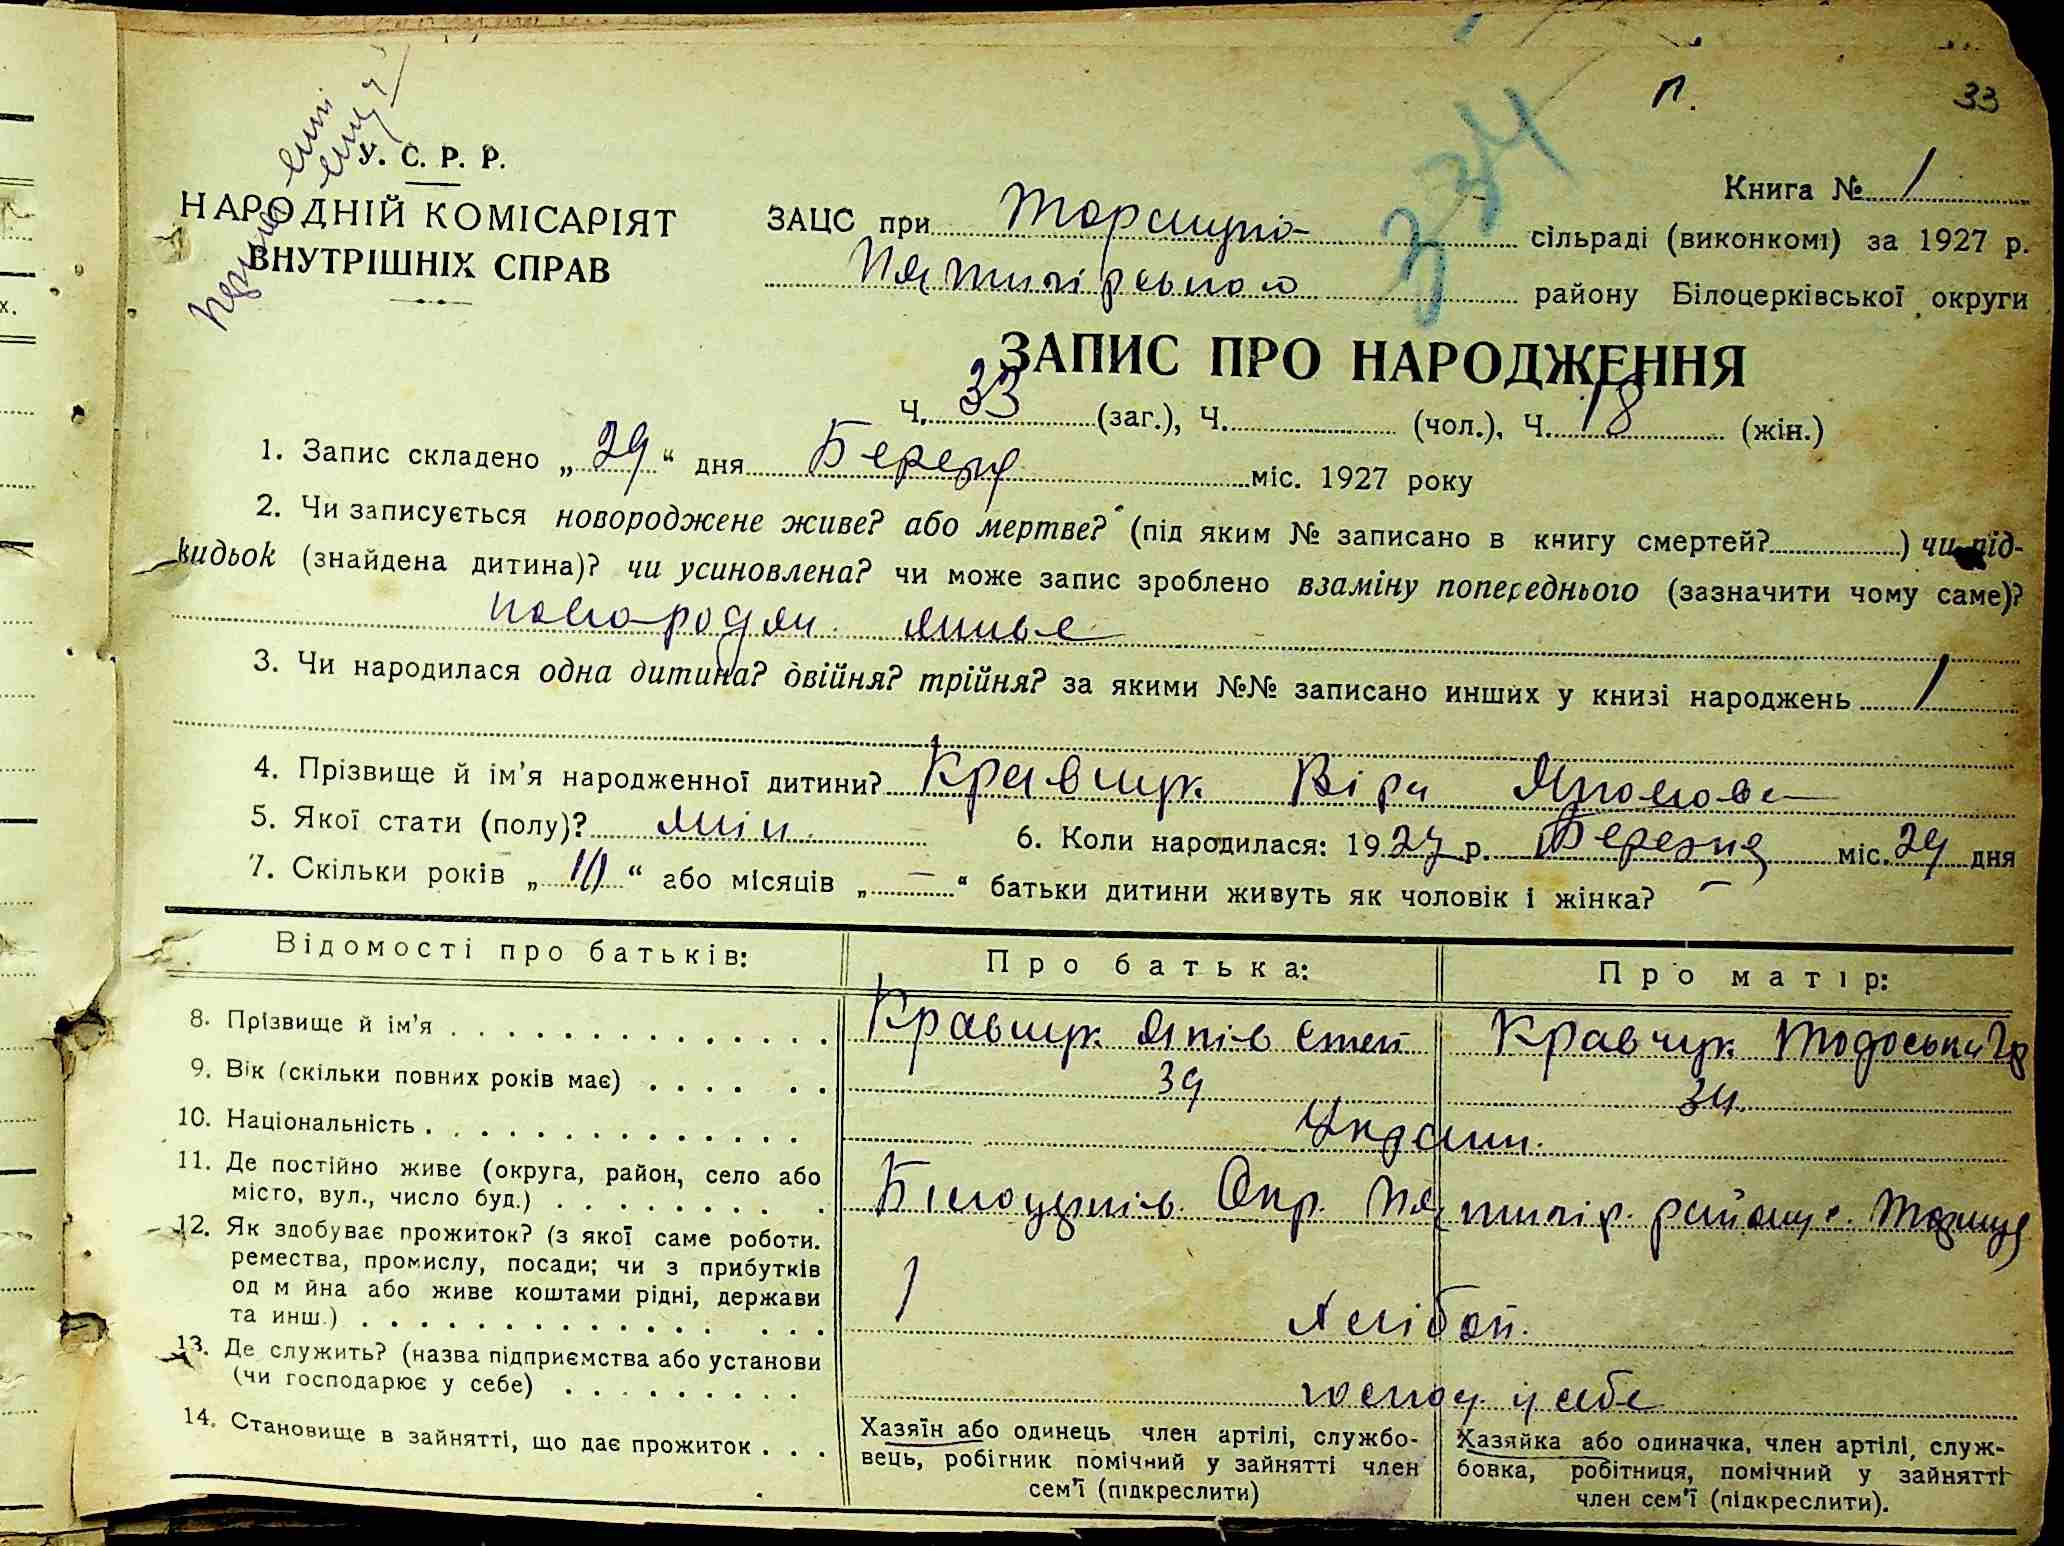 П. 33
У. С. Р. Р.
НАРОДНІЙ КОМІСАРІЯТ
ВНУТРІШНІХ СПРАВ
334
Книга № 1
ЗАЦС при сільраді (виконкомі) за 1927 р.
Пятигірського району Білоцерківської округи
ЗАПИС ПРО НАРОДЖЕННЯ
Ч. 33 (заг.), Ч. (чол.), Ч. 18 (жін.)
1. Запис складено „29“ дня Березня міс. 1927 року
2. Чи записується новороджене живе? або мертве? (під яким № записано в книгу смертей? ) чи під-
кидьок (знайдена дитина)? чи усиновлена? чи може запис зроблено взаміну попереднього (зазначити чому саме)?
живе
3. Чи народилася одна дитина? двійня? трійня? за якими №№ записано инших у книзі народжень 1
4. Прізвище й ім'я народженної дитини? Кравчук Віра
5. Якої стати (полу)? жін. 6. Коли народилася: 1927 р. Березня міс. дня
7. Скільки років „10“ або місяців „—“ батьки дитини живуть як чоловік і жінка? —
Відомості про батьків: Про батька: Про матір:
8. Прізвище й ім'я Кравчук Кравчук Тодоська
9. Вік (скільки повних років має) 39 34
10. Національність
11. Де постійно живе (округа, район, село або
місто, вул., число буд.) Білоцерків. Окр. Пятигір. району с.
12. Як здобуває прожиток? (з якої саме роботи.
ремества, промислу, посади; чи з прибутків
од м йна або живе коштами рідні, держави
та инш.) Хлібор.
13. Де служить? (назва підприємства або установи
(чи господарює у себе) господ. у себе
14. Становище в зайнятті, що дає прожиток
Хазяїн або одинець член артілі, службо-
вець, робітник помічний у зайнятті член
сем'ї (підкреслити)
Хазяйка або одиначка, член артілі, служ-
бовка, робітниця, помічний у зайнятті
член сем'ї (підкреслити).